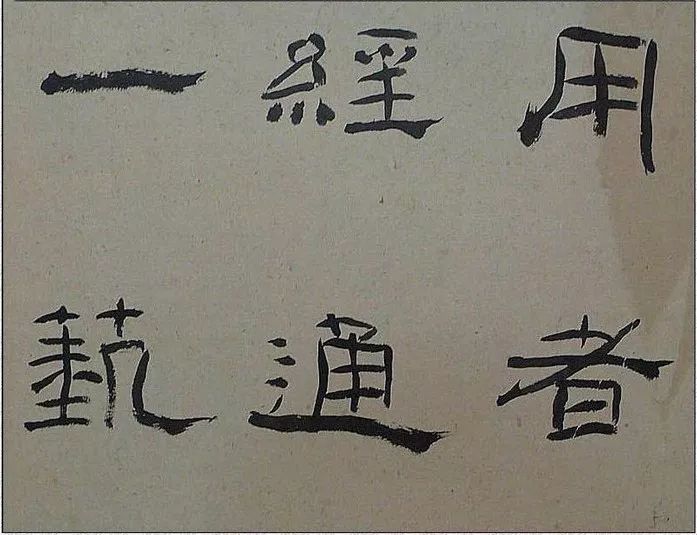 用者
經通
一蓺